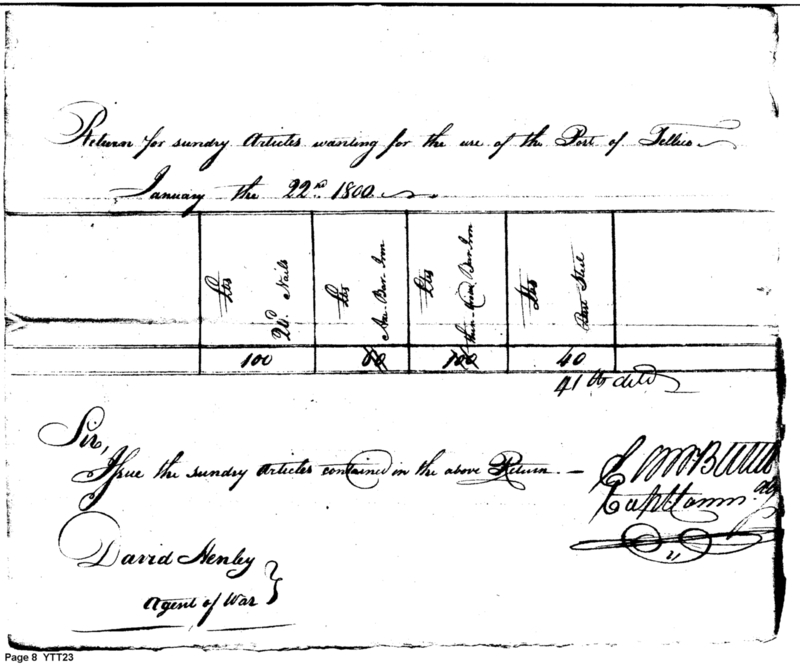 Return for sundry Articles wanting for the use of the Post of Tellico
January the 22nd 1800
lbs 20d Nails
lbs Bar Iron
lbs Bar Iron
lbs Steel
100 100 40
41 lb deld
Sir,
Issue the sundry Articles contained in the above Return. –
Capt Comm
David Henley
Agent of War
Page 8 YTT23